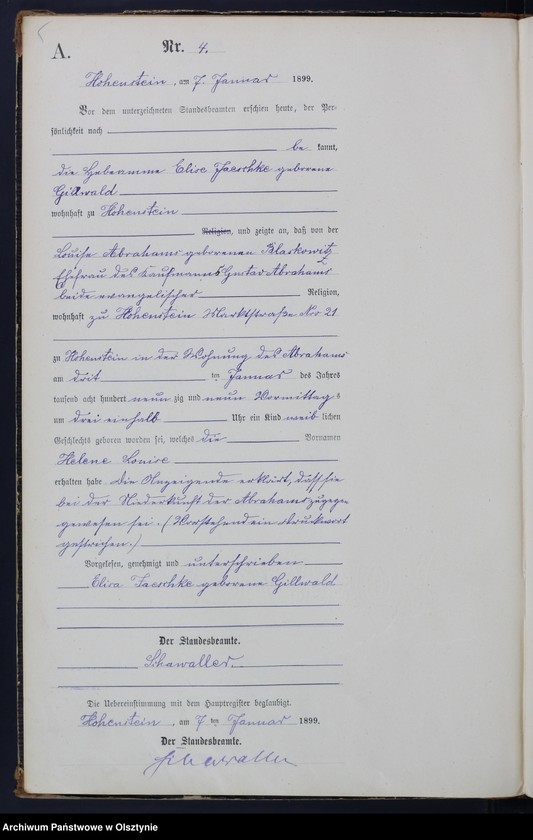 A.
Nr. 4.
Hohenstein, am 7. Januar 1899.
Vor dem unterzeichneten Standesbeamten erschien heute, der Per-
sönlichkeit nach
be kannt,
die Hebeamme Elise Jaeschke geborene
Gillwald
wohnhaft zu Hohenstein
Religion, und zeigte an, daß von der
Louise Abrahams geborenen Blaskowitz
Ehefrau des Kaufmanns Gustav Abrahams
beide evangelischer Religion,
wohnhaft zu Hohenstein Marktstraße Nro 21
zu Hohenstein in der Wohnung des Abrahams
am drit ten Januar des Jahres
tausend acht hundert neun zig und neun Vormittag s
um drei einhalb Uhr ein Kind weib lichen
Geschlechts geboren worden sei, welches die Vornamen
Helene Louise
erhalten habe. Die Anzeigende erklärt, daß sie
bei der Niederkunft der Abrahams zugegen
gewesen sei. (Vorstehend ein Druckwort
gestrichen.)
Vorgelesen, genehmigt und unterschrieben
Elise Jaeschke geborene Gillwald
Der Standesbeamte.
Schawaller.
Die Uebereinstimmung mit dem Hauptregister beglaubigt.
Hohenstein, am 7 ten Januar 1899.
Der Standesbeamte.
Schawaller
Archiwum Państwowe w Olsztynie